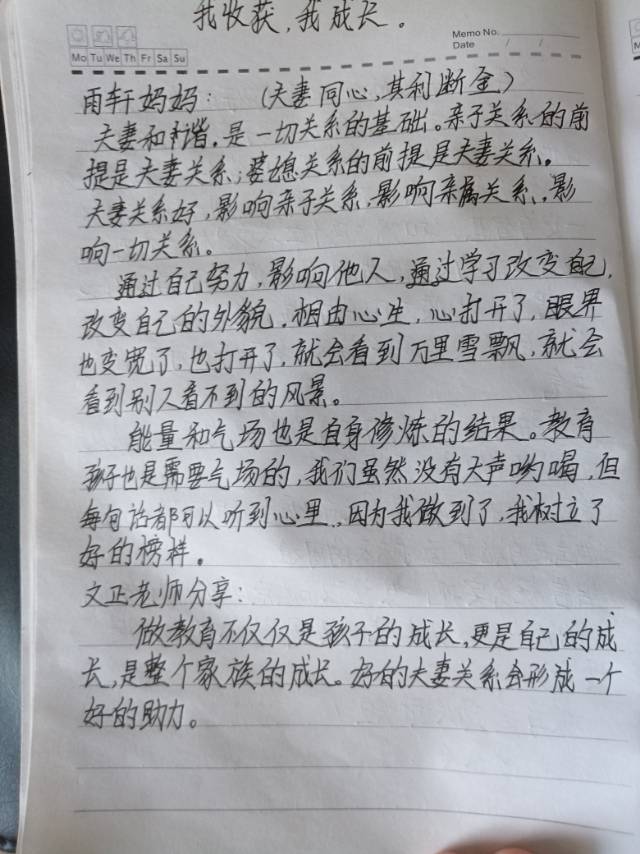 我收获,我成长。
Memo No.
Mo Tu We Th Fr Sa Su
Date / /
雨轩妈妈: (夫妻同心,其利断金)
夫妻和谐,是一切关系的基础。亲子关系的前
提是夫妻关系;婆媳关系的前提是夫妻关系。
夫妻关系好,影响亲子关系,影响亲属关系,影
响一切关系。
通过自己努力,影响他人,通过学习改变自己,
改变自己的外貌,相由心生,心打开了,眼界
也变宽了,也打开了,就会看到万里雪飘,就会
看到别人看不到的风景。
能量和气场也是自身修炼的结果。教育
孩子也是需要气场的,我们虽然没有大声吆喝,但
每句话都可以听到心里,因为我做到了,我树立了
好的榜样。
文正老师分享:
做教育不仅仅是孩子的成长,更是自己的成
长,是整个家族的成长。好的夫妻关系会形成一个
好的助力。